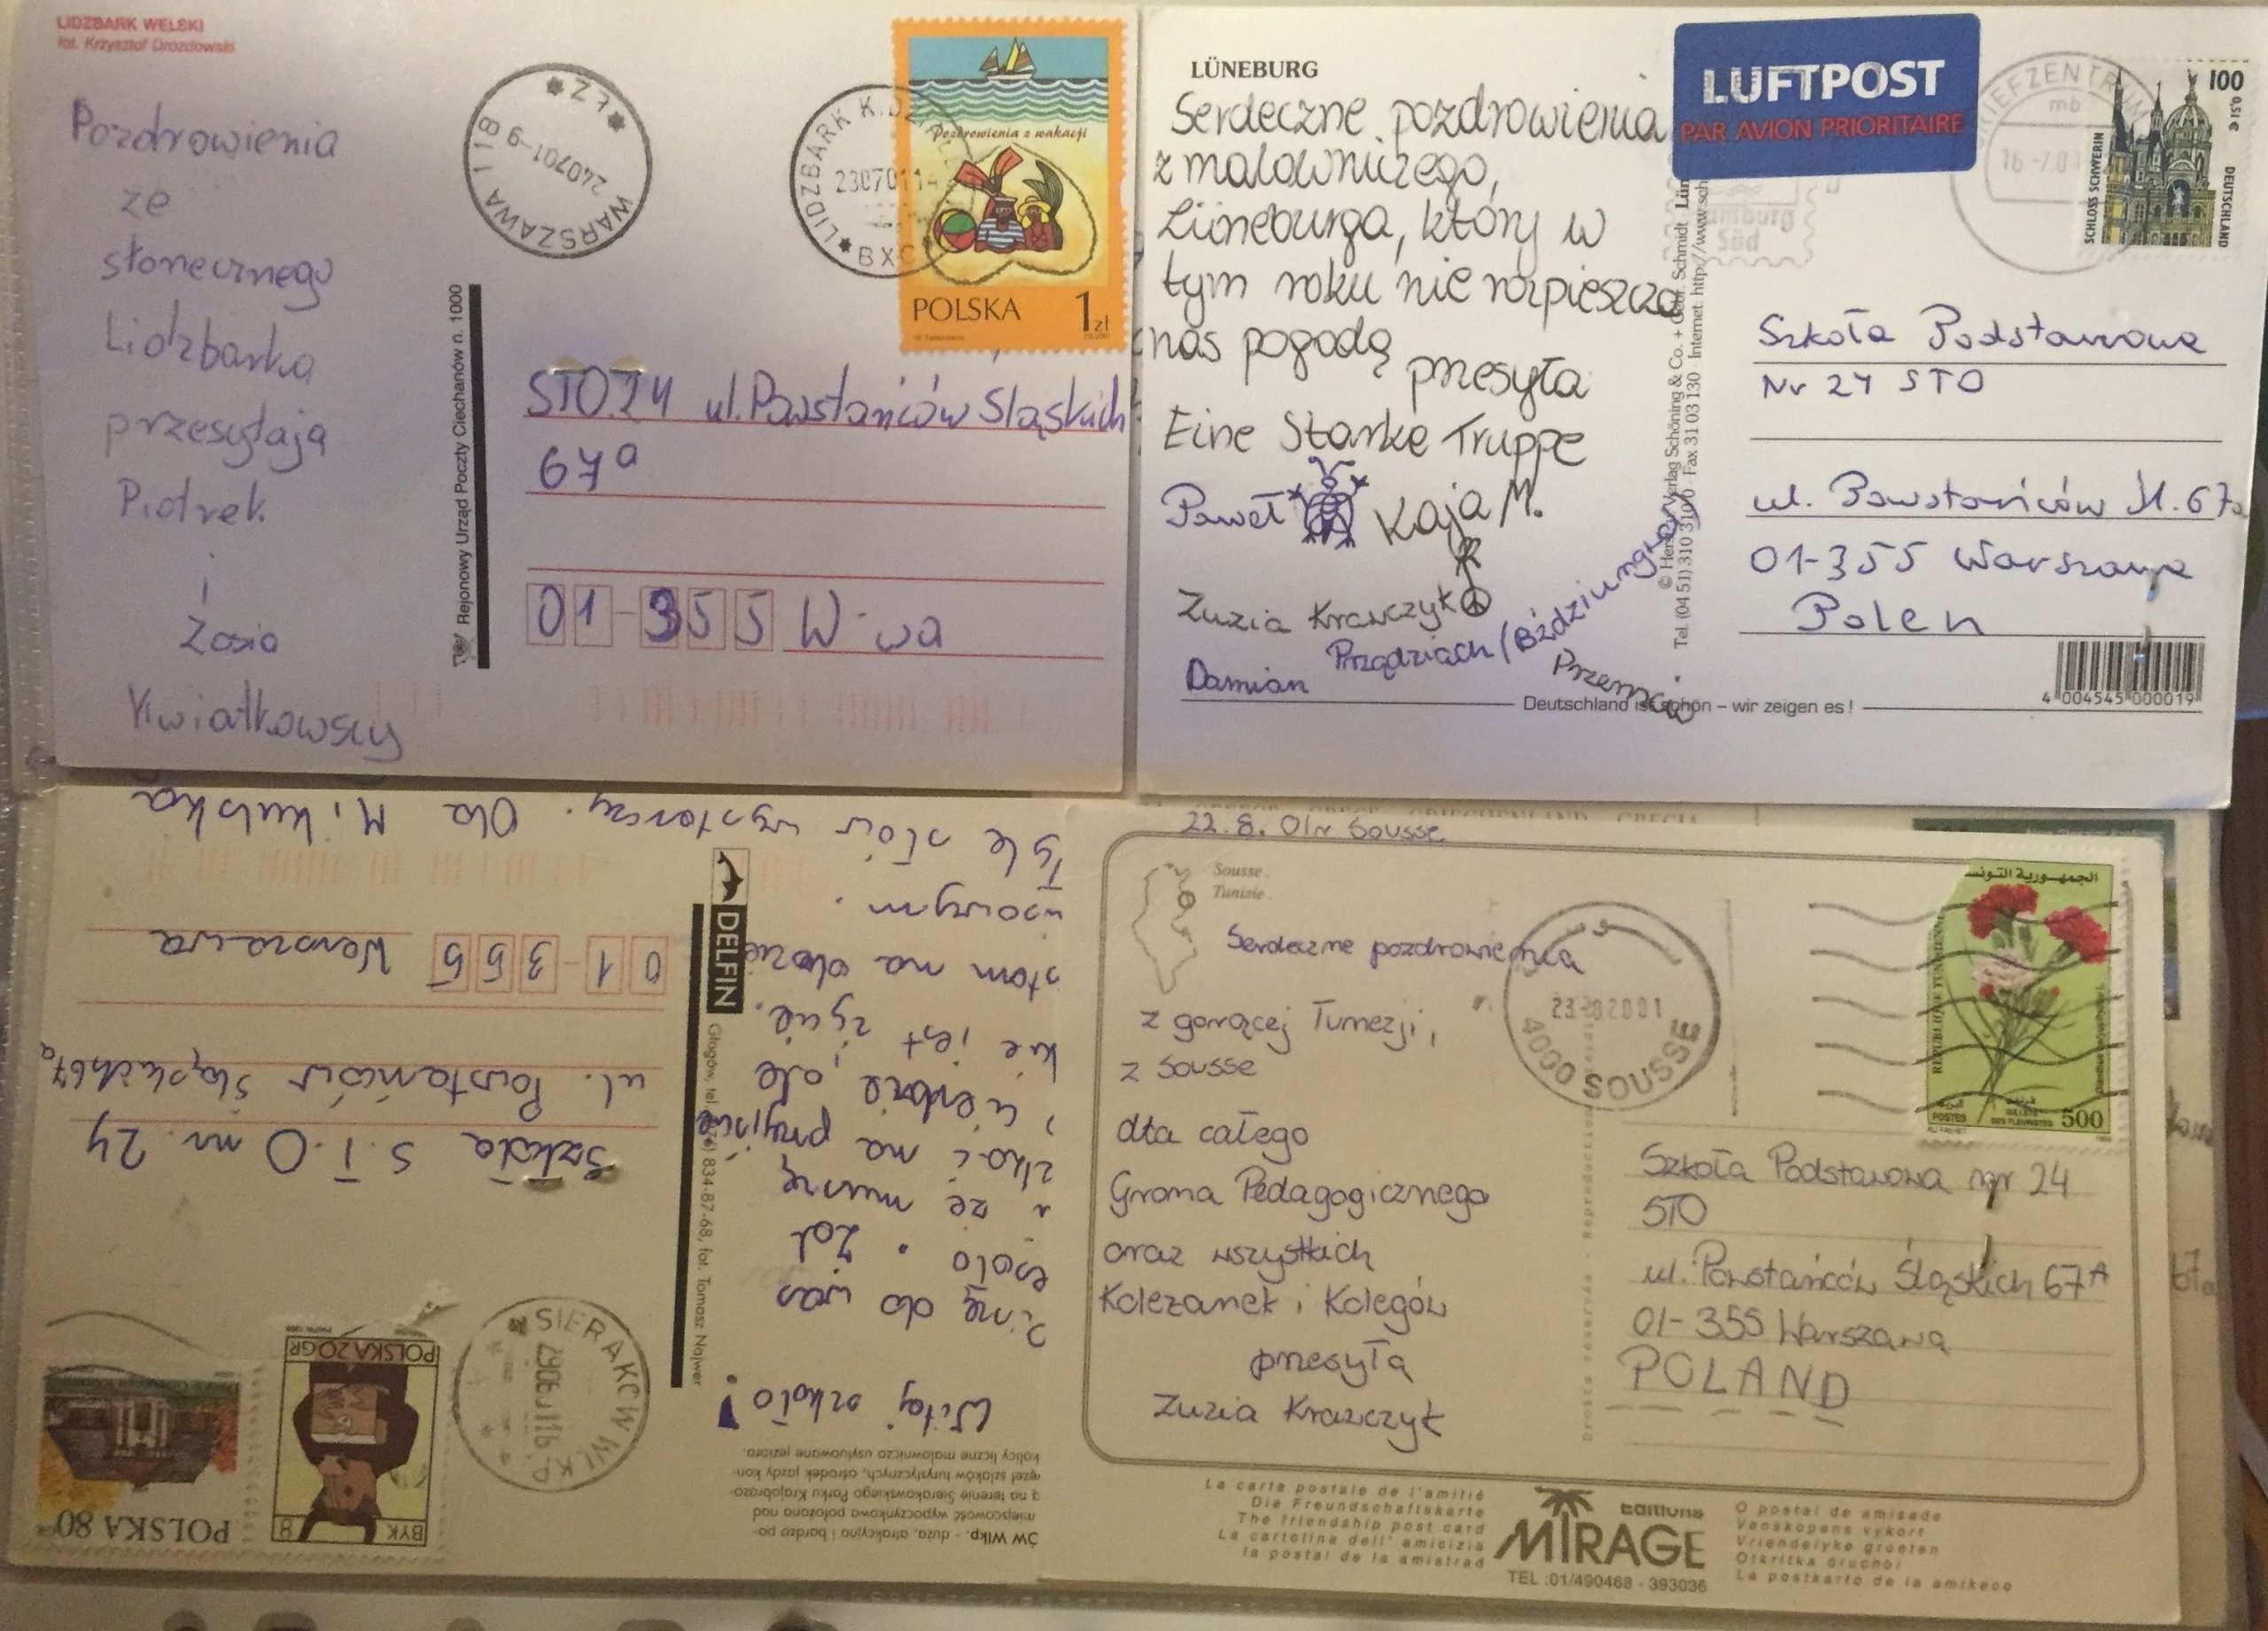 LIDZBARK WELSKI
fot. Krzysztof Drozdowski
Pozdrowienia
ze
słonecznego
Lidzbarka
przesyłają
Piotrek
i
Zosia
Kwiatkowscy
Rejonowy Urząd Poczty Ciechanów n. 1000
WARSZAWA 118
240701-9
*ŁZ*
LIDZBARK K.DZ
230701 14
BXC
Pozdrowienia z wakacji
POLSKA 1 zł
STO.24 ul. Powstańców Śląskich
67a
01-355 W-wa
LÜNEBURG
Serdeczne pozdrowienia
z malowniczego,
Lüneburga, który w
tym roku nie rozpieszcza
nas pogodą
przesyła
Eine Starke Truppe
Paweł Kaja M.
Zuzia Krawczyk
Prządziach
Damian
LUFTPOST
PAR AVION PRIORITAIRE
BRIEFZENTRUM
mb
16-7.01
100
0,51 €
SCHLOSS SCHWERIN
DEUTSCHLAND
Tel. (04 51) 310 310 Fax 31 03 130 Internet: http://www.sch
Szkoła Podstawowa
Nr 24 STO
ul. Powstańców Śl. 67a
01-355 Warszawa
Polen
Deutschland ist schön – wir zeigen es!
4 004545 000019
ÓW Wlkp. - duża, atrakcyjna i bardzo po-
miejscowość wypoczynkowa położona nad
ą na terenie Sierakowskiego Parku Krajobrazo-
węzeł szlaków turystycznych, ośrodek jazdy kon-
kolicy liczne malowniczo usytuowane jeziora.
Witaj szkoło!
do was
. Żal
że muszę
na przyjście
ale
kie jest życie.
stam na obozie
Tyle słów wystarczy. Ola Mikulska
DELFIN
Głogów, tel. 834-87-68, fot. Tomasz Najwer
SIERAKÓW WLKP.
POLSKA 80
BYK 8
POLSKA 20GR
Szkoła S.T.O nr. 24
ul. Powstańców Śląskich 67a
01-355 Warszawa
22.8.01r Sousse
Sousse
Tunisie
Serdeczne pozdrowienia
z gorącej Tunezji,
z Sousse
dla całego
Grona Pedagogicznego
oraz wszystkich
Koleżanek i Kolegów
przesyła
Zuzia Krawczyk
4000 SOUSSE
الجمهورية التونسية
REPUBLIQUE TUNISIENNE
POSTES
500
Szkoła Podstawowa nr 24
STO
ul. Powstańców Śląskich 67A
01-355 Warszawa
POLAND
La carte postale de l'amitié
Die Freundschaftskarte
The friendship post card
La cartolina dell' amicizia
la postal de la amistrad
Editions
MIRAGE
TEL :01/490468 - 393036
O postal de amisade
Venskopens vykort
Vriendelyke groeten
Otkritka druchbi
La postkarto de la amikeco